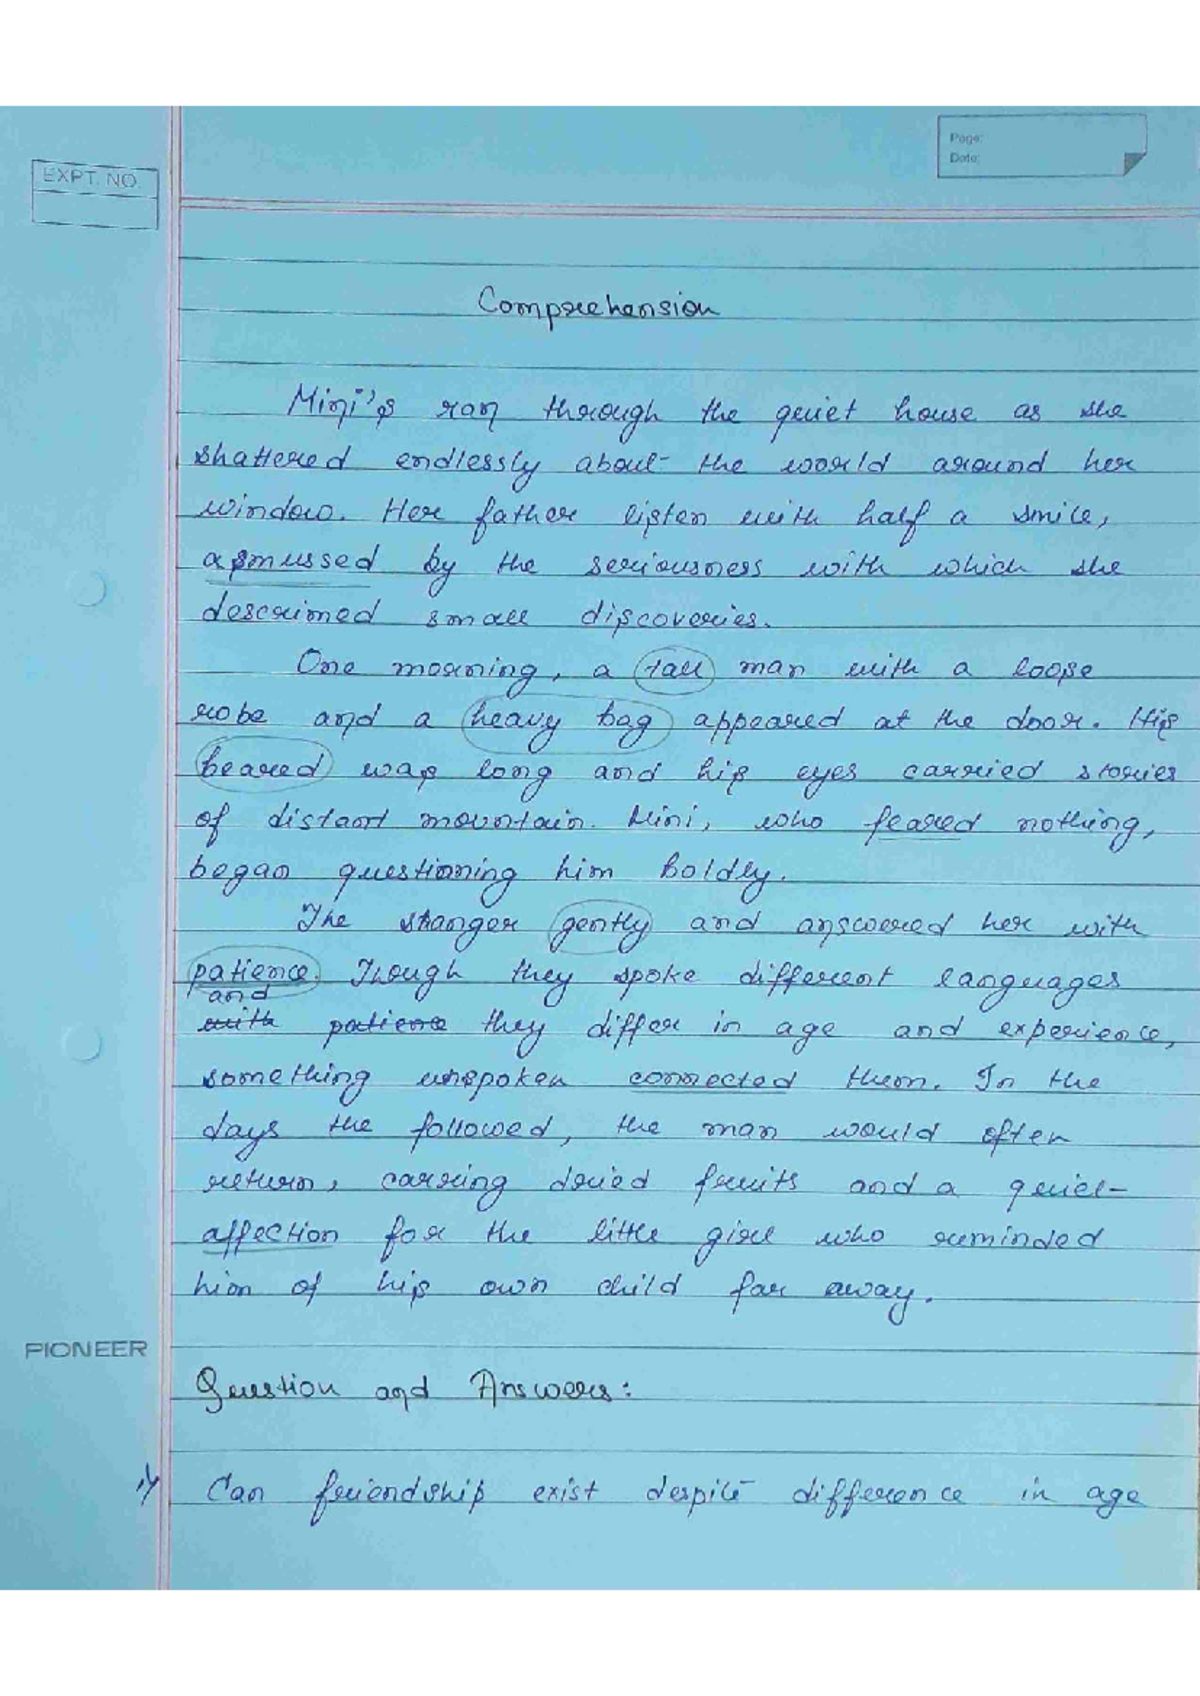 Page:
Date:
EXPT. NO.
Comprehension
Mini's ran through the quiet house as she
shattered endlessly about the world around her
window. Her father listen with half a smile,
asmussed by the seriousness with which she
descrimed small discoveries.
One morning, a tall man with a loose
robe and a heavy bag appeared at the door. His
beared was long and his eyes carried stories
of distant mountain. Mini, who feared nothing,
began questioning him boldly.
The stranger gently and answered her with
patience. Though they spoke different languages
and
with patience they differ in age and experience,
something unspoken connected them. In the
days the followed, the man would often
return, carrying dried fruits and a quiet
affection for the little girl who reminded
him of his own child far away.
PIONEER
Question and Answers:
1) Can friendship exist despite difference in age